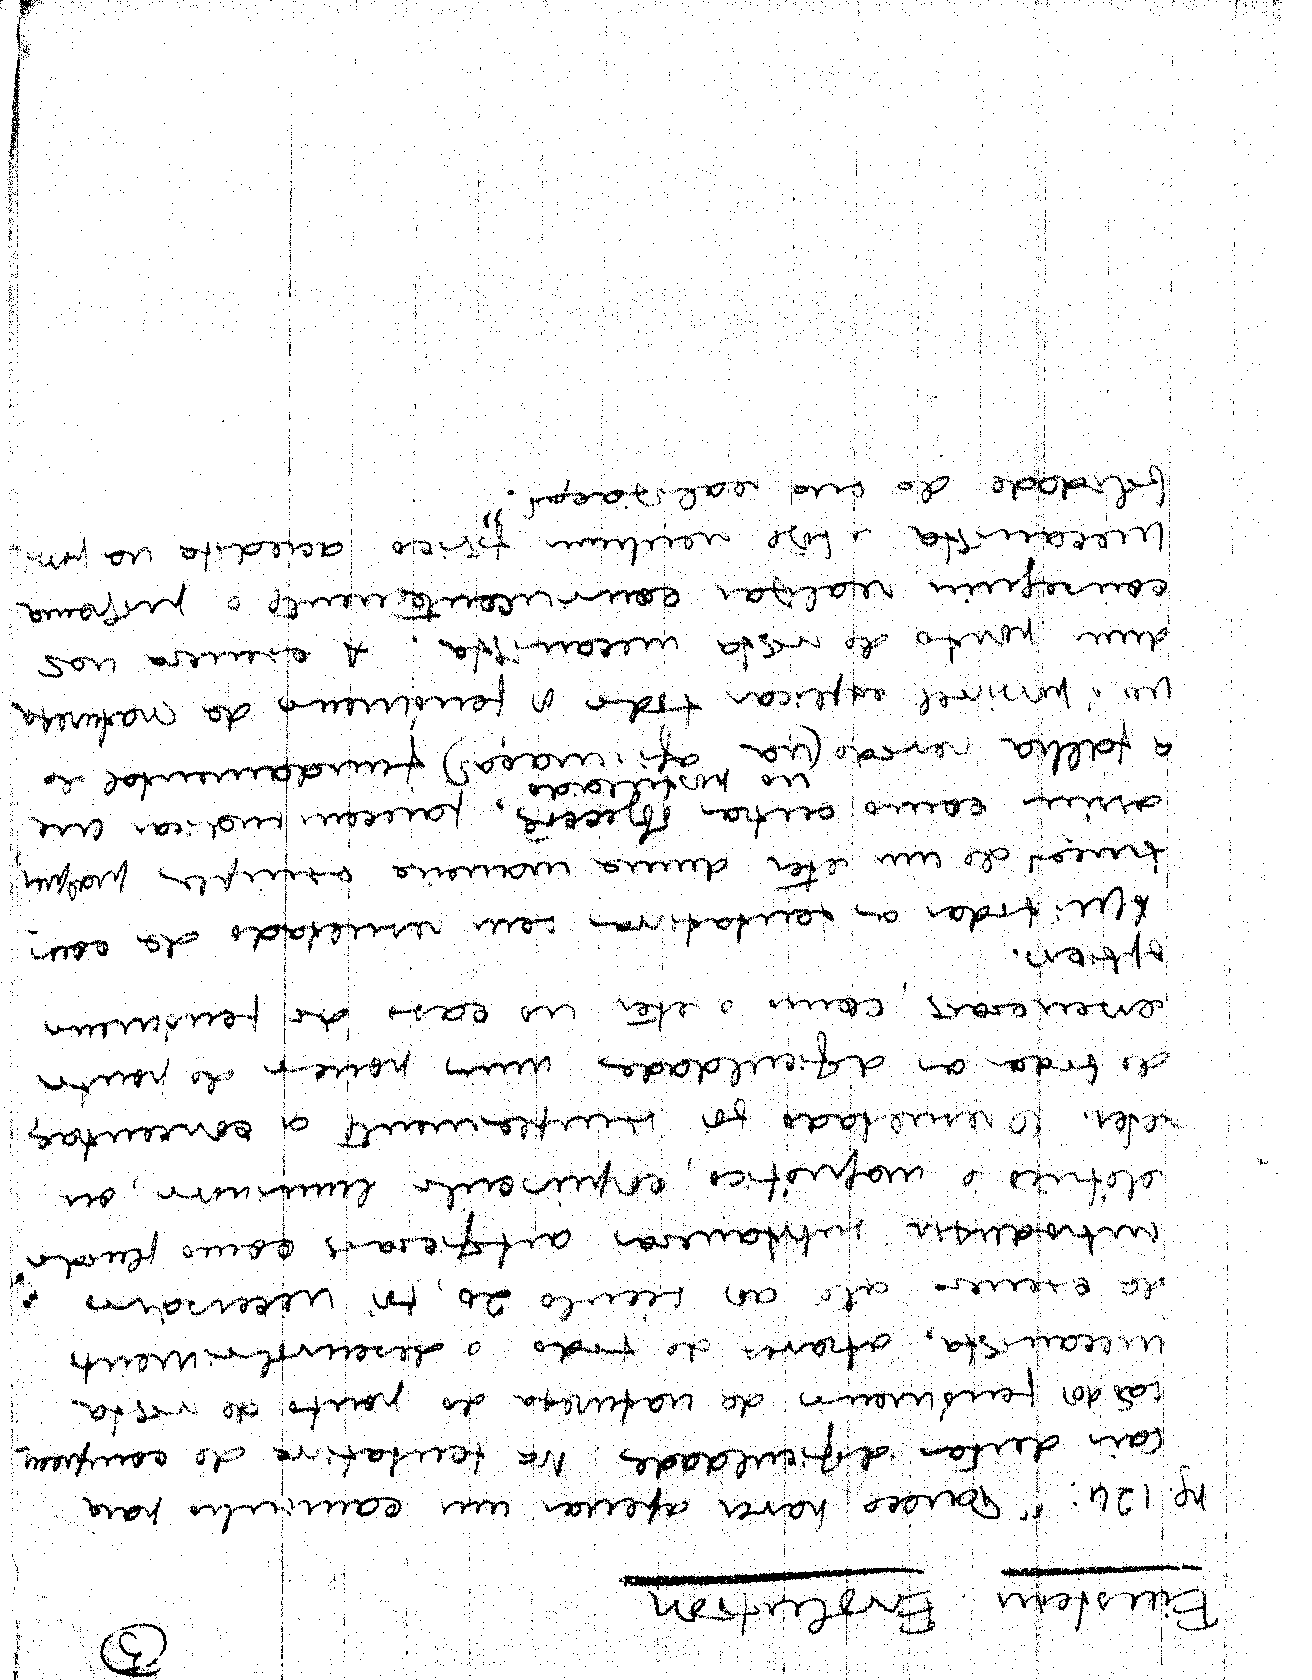 3
Einstein Evolution
pg. 124: "Parece haver apenas um caminho para
sair destas dificuldades. Na tentativa de compreen-
são dos fenômenos da natureza do ponto de vista
mecanista, através de todo o desenvolvimento
da ciência até ao século 20, foi necessário
introduzir substâncias artificiais como fluidos
elétricos e magnéticos, corpúsculos luminosos, ou
eter. O resultado foi simplesmente a concentração
de todas as dificuldades num poucos de pontos
essenciais, como o eter no caso dos fenômenos
ópticos.
Aqui todas as tentativas sem resultado da cons-
trução de um eter duma maneira simples
assim como outras objecções, parecem indicar que
no postulado
a falha reside (na afirmação) fundamental de
ser possível explicar todos os fenômenos da natureza
dum ponto de vista mecanista. A ciência nos
conseguiu realizar convincentemente o programa
mecanista e hoje nenhum físico acredita na pos-
sibilidade da sua realização."